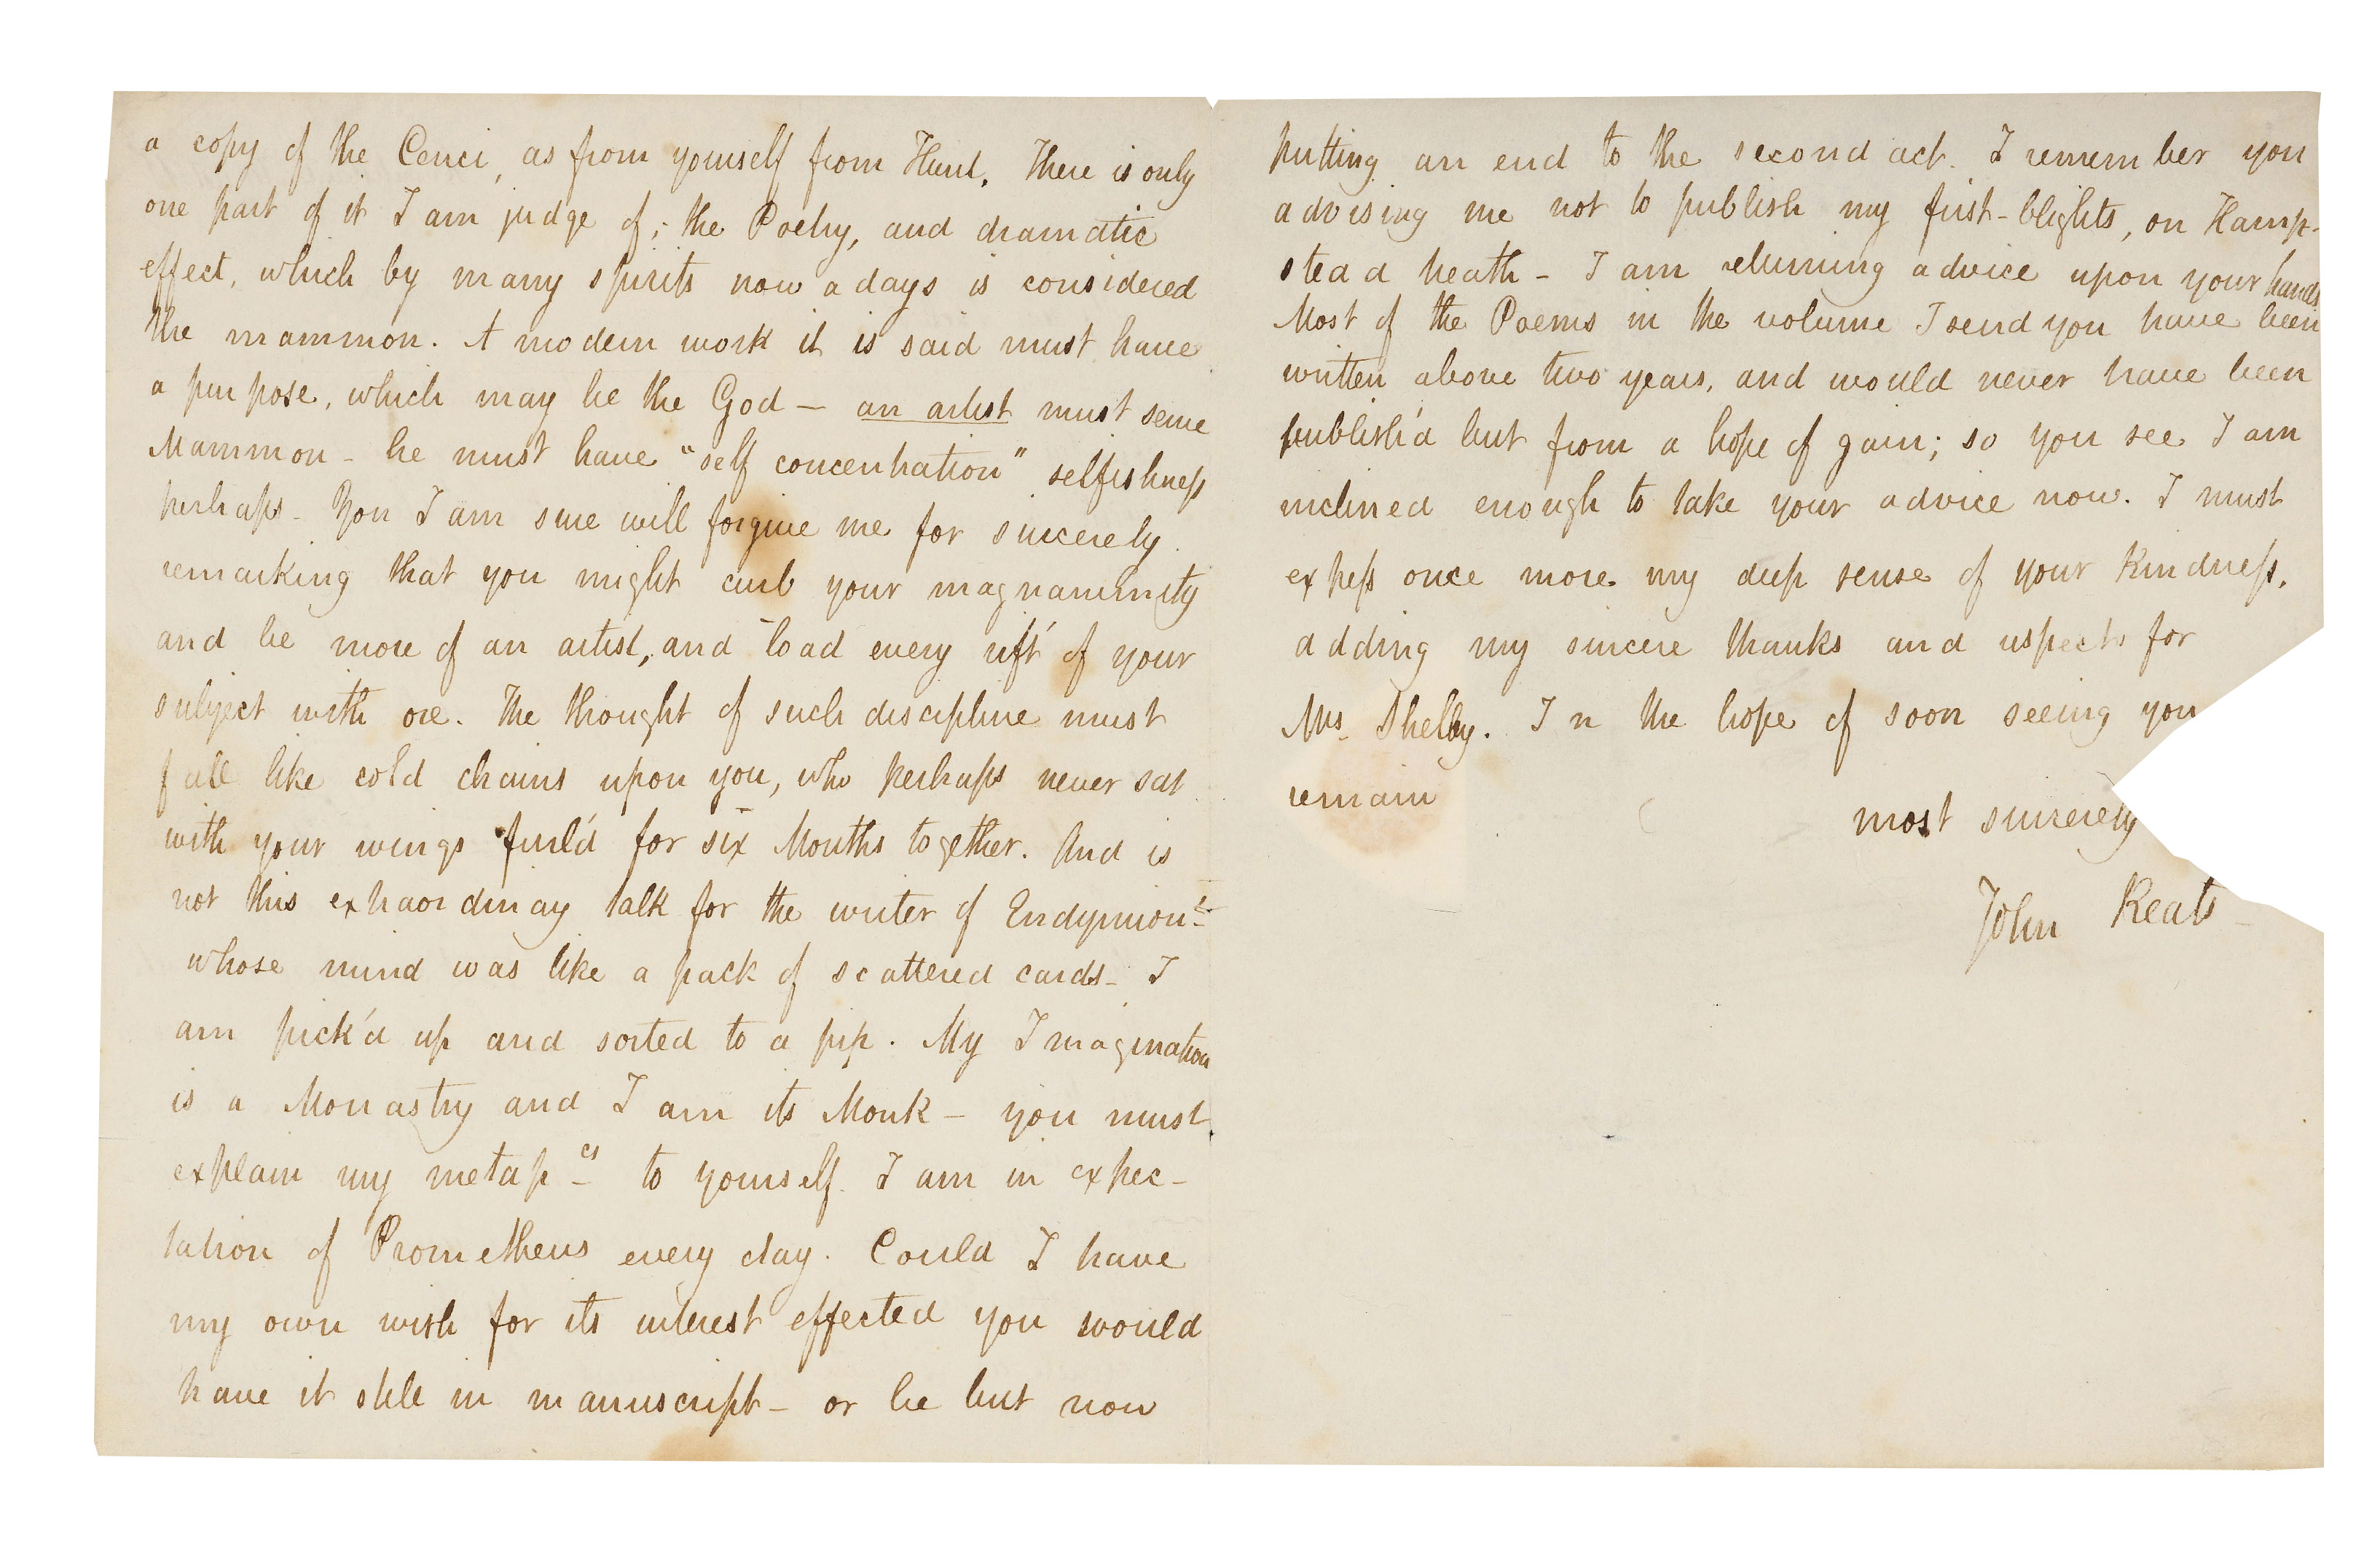 a copy of the Cenci, as from yourself from Hunt. There is only
one part of it I am judge of; the Poetry, and dramatic
effect, which by many spirits now a days is considered
the mammon. A modern work it is said must have
a purpose, which may be the God – an artist must serve
Mammon – he must have "self concentration" selfishness
perhaps. You I am sure will forgive me for sincerely
remarking that you might curb your magnanimity
and be more of an artist, and load every rift of your
subject with ore. The thought of such discipline must
fall like cold chains upon you, who perhaps never sat
with your wings furl'd for six Months together. And is
not this extraordinay talk for the writer of Endymion?
whose mind was like a pack of scattered cards – I
am pick'd up and sorted to a pip. My Imagination
is a Monastry and I am its Monk – you must
explain my metap cs to yourself. I am in expec-
tation of Prometheus every day. Could I have
my own wish for its interest effected you would
have it still in manuscript – or be but now
putting an end to the second act. I remember you
advising me not to publish my first-blights, on Hamp-
stead heath – I am returning advice upon your hands
Most of the Poems in the volume I send you have been
written above two years, and would never have been
publish'd but from a hope of gain; so you see I am
inclined enough to take your advice now. I must
express once more my deep sense of your kindness,
adding my sincere thanks and respects for
Mrs. Shelley. In the hope of soon seeing you
remain
most sincerely
John Keats –